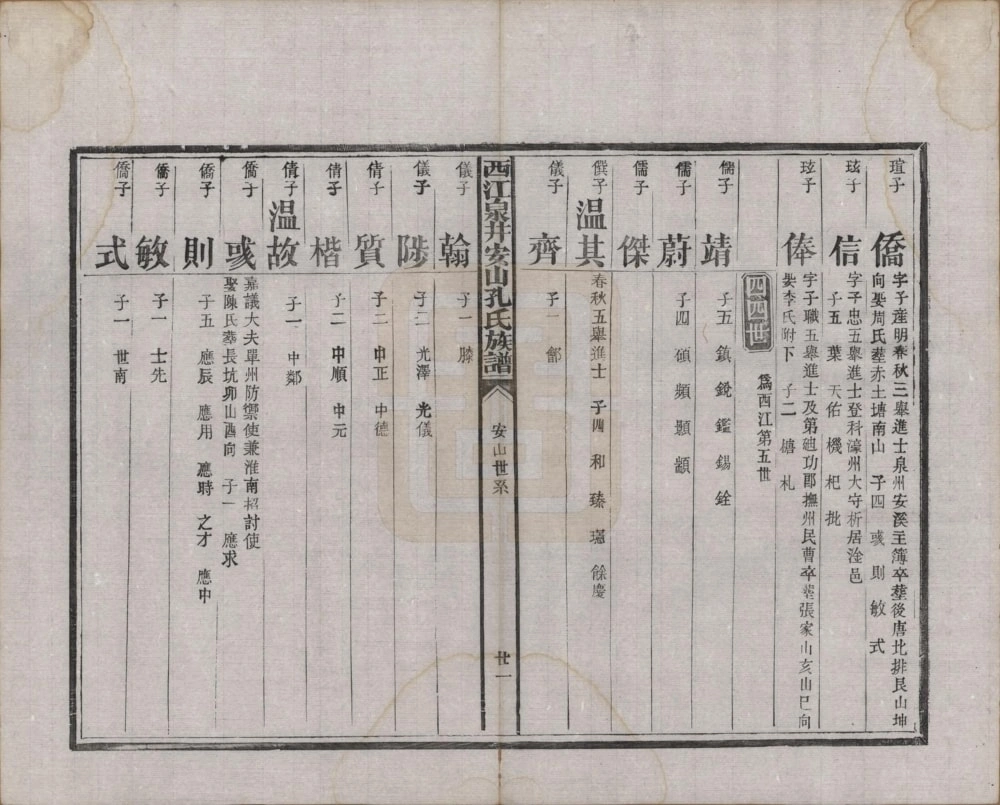 瑄子
僑
字子産明春秋三舉進士泉州安溪主簿卒塟後唐北排艮山坤
向娶周氏塟赤土塘南山 子四 彧 則 敏 式
玹子
信
字子忠五舉進士登科濠州大守析居淦邑
子五 葉 天佑 機 杞 批
玹子
俸
字子職五舉進士及第廸功郎撫州民曹卒塟張家山亥山巳向
娶李氏附下 子二 樯 札
四四世
爲西江第五世
儒子
靖
子五 鎮 銳 鑑 錫 銓
儒子
蔚
子四 碩 頻 顥 顓
儒子
傑
僎子
温其
春秋五舉進士 子四 和 瑧 璶 餘慶
儀子
齊
子一 鄫
西江泉井安山孔氏族譜
安山世系
廿一
儀子
翰
子一 滕
儀子
陟
子二 光澤 光儀
倩子
質
子二 中正 中德
倩子
楷
子二 中順 中元
倩子
温故
子一 中鄰
僑子
彧
嘉議大夫單州防禦使兼淮南招討使
娶陳氏塟長坑卯山酉向 子一 應求
僑子
則
子五 應辰 應用 應時 之才 應中
僑子
敏
子一 士先
僑子
式
子一 世南